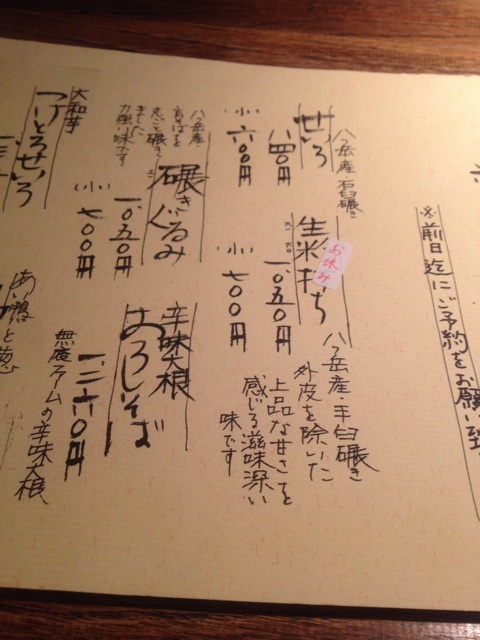 ※前日迄にご予約をお願い致
八ヶ岳産石臼碾き
せいろ
八四〇円
(小)六〇〇円
生粉打ち
きこ
お休み
一、〇五〇円
(小)七〇〇円
八ヶ岳産・手臼碾き
外皮を除いた
上品な甘さを
感じる滋味深い
味です
八ヶ岳産
玄そばを
丸ごと碾き
ました
力強い味です
碾きぐるみ
一、〇五〇円
(小)七〇〇円
辛味大根
おろしそば
一、二六〇円
無庵ファームの辛味大根、
大和芋
つけとろせいろ
あい鴨と葱